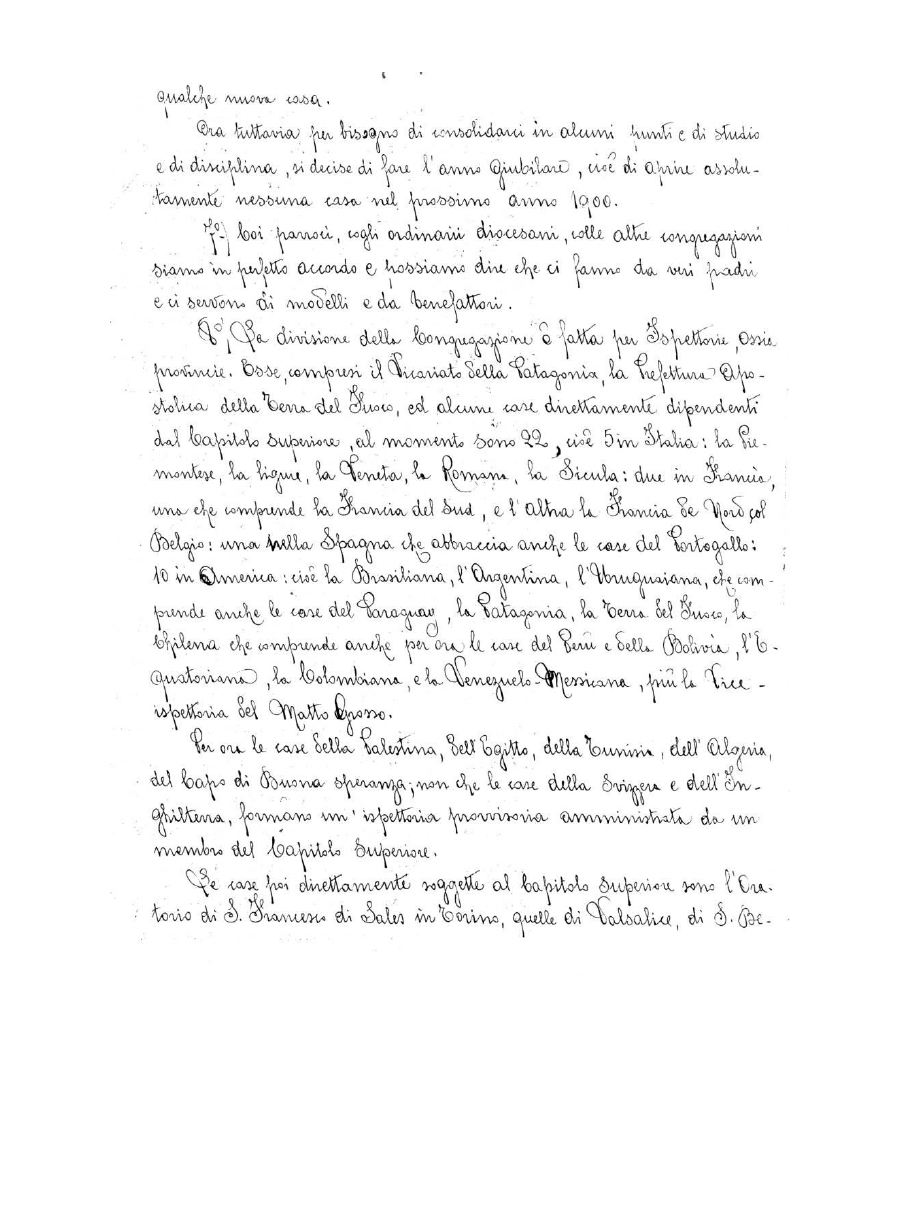 qualche nuova casa.
Ora tuttavia per bisogno di consolidarci in alcuni punti e di studio
e di disciplina, si decise di fare l'anno giubilare, cioè di aprire assolu-
tamente nessuna casa nel prossimo anno 1900.
7º) Coi parroci, cogli ordinarii diocesani, colle altre congregazioni
siamo in perfetto accordo e possiamo dire che ci fanno da veri padri
e ci servono di modelli e da benefattori.
La divisione della Congregazione è fatta per Ispettorie, ossia
provincie. Esse, compresi il Vicariato della Patagonia, la Prefettura Apo-
stolica della Terra del Fuoco, ed alcune case direttamente dipendenti
dal Capitolo superiore, al momento sono 22, cioè 5 in Italia: la Pie-
montese, la ligure, la Veneta, la Romana, la Sicula: due in Francia,
una che comprende la Francia del Sud, e l'altra la Francia de Nord col
Belgio: una nella Spagna che abbraccia anche le case del Portogallo:
10 in America: cioè la Brasiliana, l'Argentina, l'Uruguaiana, che com-
prende anche le case del Paraguay, la Patagonia, la Terra del Fuoco, la
Chilena che comprende anche per ora le case del Perù e della Bolivia, l'E-
quatoriana, la Colombiana, e la Venezuelo-Messicana, più la Vice-
ispettoria del Matto Grosso.
Per ora le case della Palestina, dell'Egitto, della Tunisia, dell'Algeria,
del Capo di Buona speranza; non che le case della Svizzera e dell'In-
ghilterra, formano un'ispettoria provvisoria amministrata da un
membro del Capitolo Superiore.
Le case poi direttamente soggette al Capitolo Superiore sono l'Ora-
torio di S. Francesco di Sales in Torino, quelle di Valsalice, di S. Be-